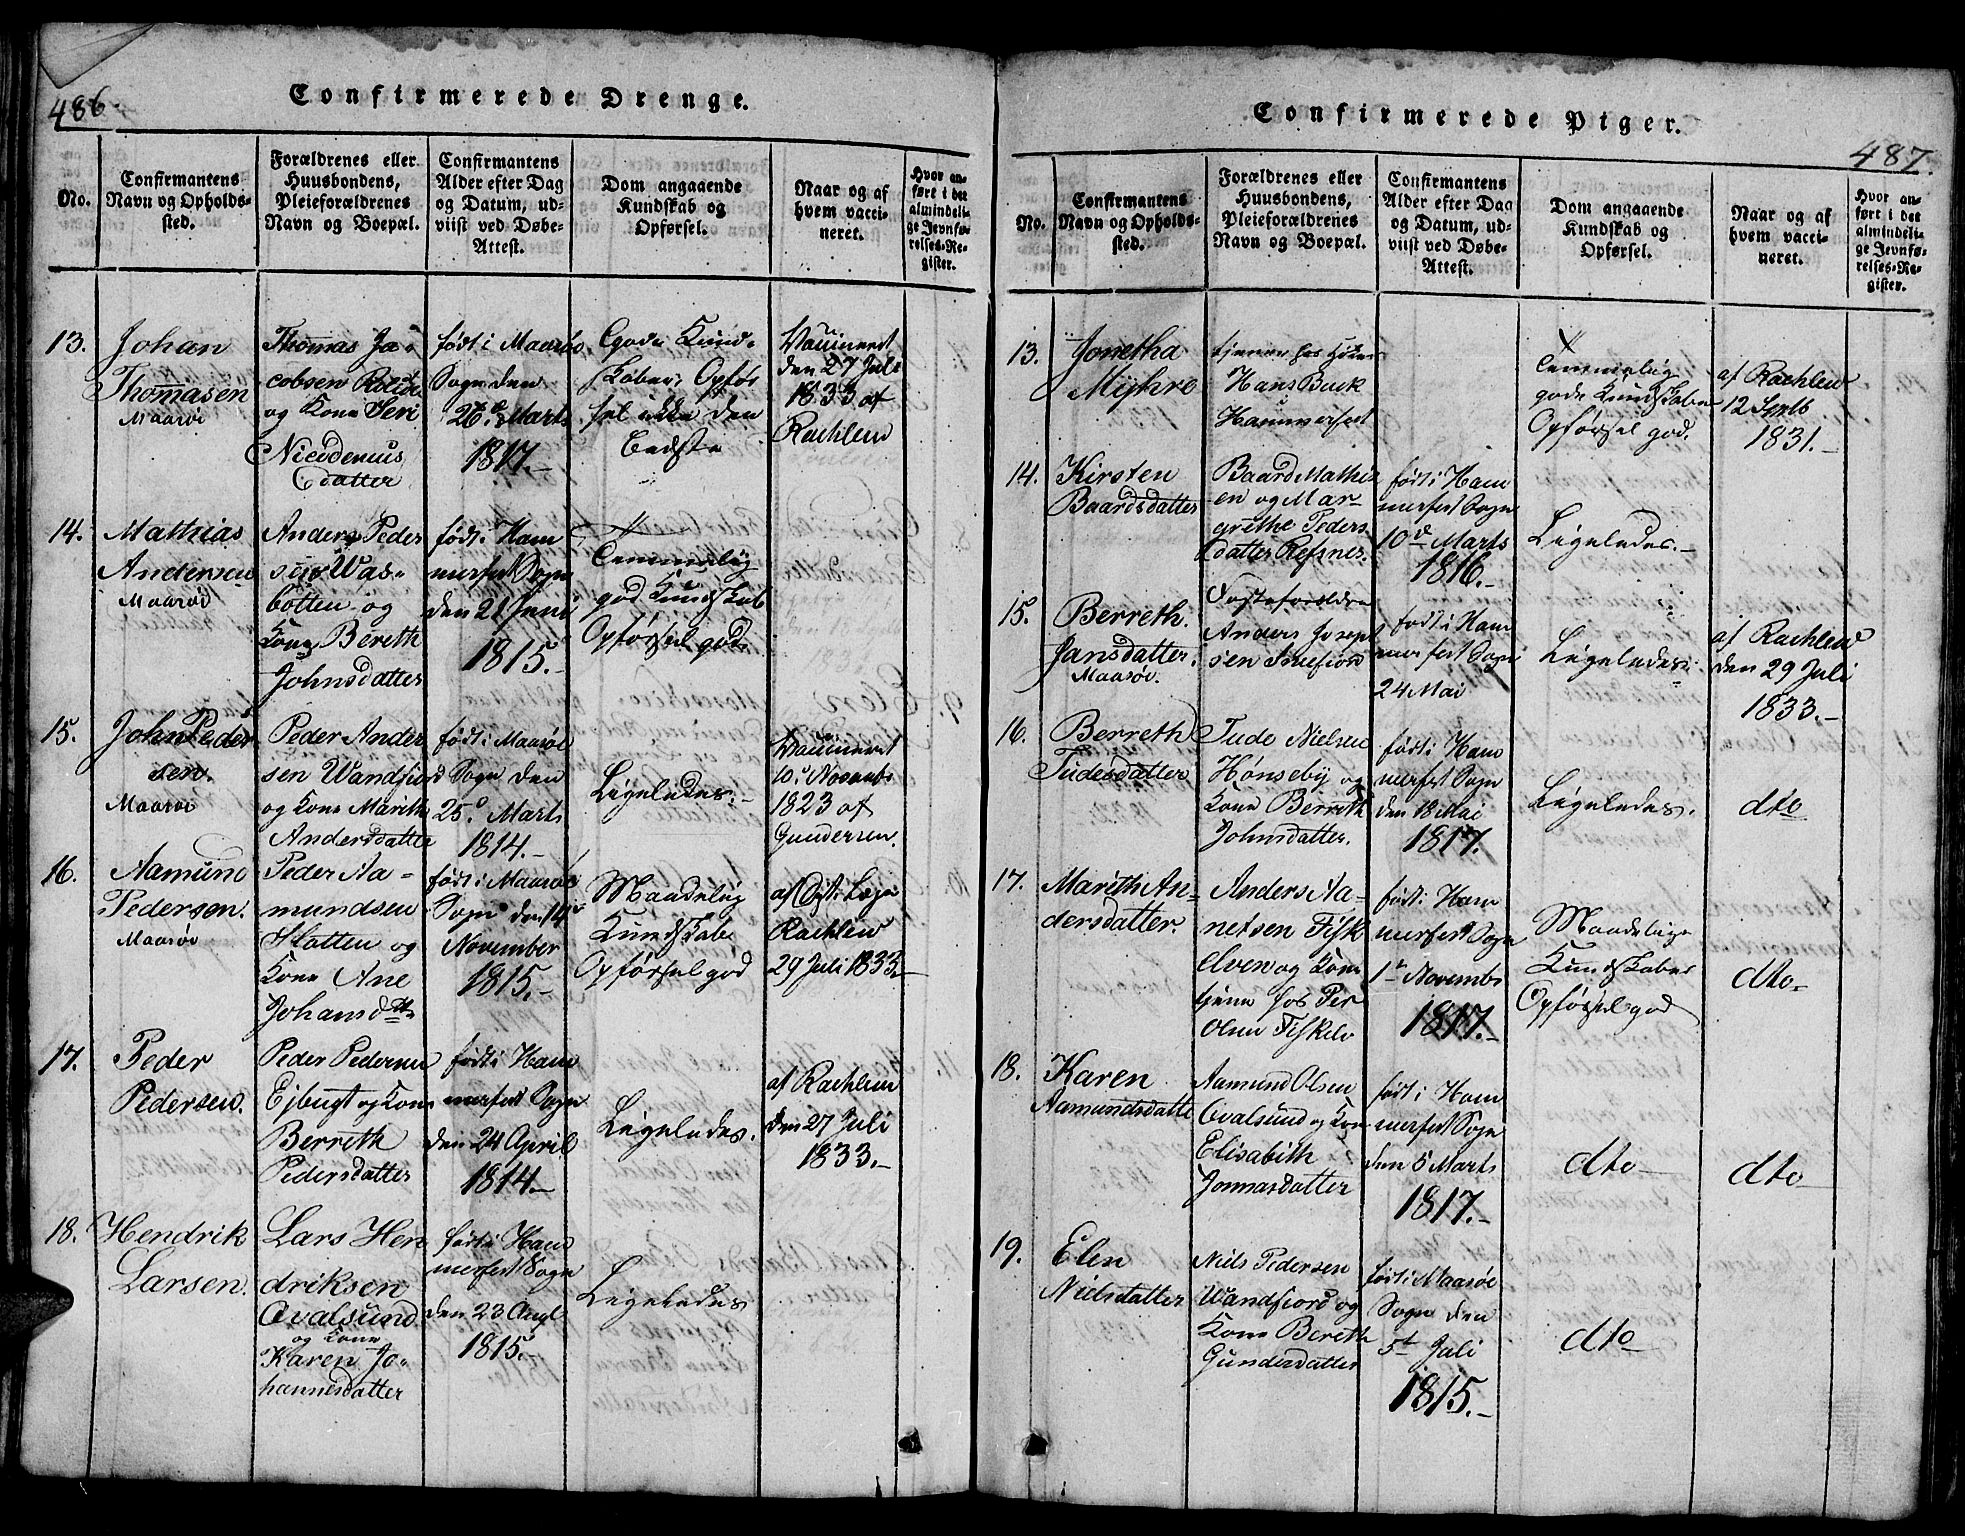 486.
Confirmerede Drenge.
No.
Confirmantens
Navn og Opholds-
sted.
Forældrenes eller
Huusbondens,
Pleieforældrenes
Navn og Boepæl.
Confirmantens
Alder efter Dag
og Datum, ud-
viist ved Døbe-
Attest.
Dom angaaende
Kundskab og
Opførsel.
Naar og af
hvem vacci-
neret.
Hvor an-
ført i det
almindeli-
ge Jevnfø-
relses-Re-
gister.
13.
Johan
Thomasen
Maasøi
Thomas Ja-
cobsen
og Kone Seri
Nicodemus
Datter
født i Maasøe
Sogn den
26de Marts
1817.-
Gode Kund-
skaber, Opfør
sel ikke den
bedste
Vaccineret
den 27 Juli
1833 af
Rachlew
14.
Mathias
Andersen
Maasøi
Anders Peder
sen Was-
botten og
Kone Bereth
Johnsdatter
født i Ham
merfest Sogn
den 21 Juni
1815.-
Temmelig
god Kundskab
Opførsel god.
15.
John Peder
sen.
Maasøi
Peder Ander
sen Wandfiord
og Kone Mareth
Andersdatter
født i Maasøe
Sogn den
25de Marts
1814.-
Ligeledes.-
Vaccineret
10de Novemb
1823 af
Gundersen.
16.
Aamund
Pedersen.
Maasøi
Peder Aa-
mundsen
Slatten og
Kone Ane
Johansdtr
født i Maasøe
Sogn den 14de
November
1815.-
Maadelig
Kundskab
Opførsel god
af Dist: Læge
Rachlew
29 Juli 1833.-
17.
Peder
Pedersen.
Peder Pedersen
Ejbugt og Kone
Berreth
Pedersdatter
født i Ham
merfest Sogn
den 24 April
1814.-
Ligeledes.
af Rachlew
den 27 Juli
1833.-
18.
Hendrik
Larsen.
Lars Hen
driksen
Qvalsund
og Kone
Karen Jo-
hannesdatter
født i Ham
merfest Sogn
den 23 Augl
1815.-
Ligeledes
Confirmerede Piger.
487.
No.
Confirmantens
Navn og Opholds-
sted.
Forældrenes eller
Huusbondens,
Pleieforældrenes
Navn og Boepæl.
Confirmantens
Alder efter Dag
og Datum, ud-
viist ved Døbe-
Attest.
Dom angaaende
Kundskab og
Opførsel.
Naar og af
hvem vacci-
neret.
Hvor an-
ført i det
almindeli-
ge Jevnfø-
relses-Re-
gister.
13.
Jonetha
Myhre
tjener hos
Hans Buck
Hammerfest
Temmelig
gode Kundskaber
Opførsel god.
af Rachlew
12 Septb
1831.-
14.
Kirsten
Baardsdatter
Baard Mathis
en og Mar
grethe Peders
datter Refsnes.
født i Ham
merfest Sogn
10de Marts
1816.-
Ligeledes.-
15.
Berreth
Jansdatter.
Maasøi.
Fosterforældre
Anders Joseph
sen Snefiord
født i Ham
merfest Sogn
24 Mai
Ligeledes.-
af Rachlew
den 29 Juli
1833.-
16.
Berreth
Tudesdatter
Tude Nielsen
Hønseby og
Kone Berreth
Johnsdatter.
født i Ham
merfest Sogn
den 18 Mai
1817.-
Ligeledes.
dto
17.
Mareth An-
dersdatter.
Anders Aa-
netsen Fisk
elven og Kone
tjene hos Per
Olsen Fiskelv
født i Ham
merfest Sogn
1te Novemb
1817.-
Maadelige
Kundskaber
Opførsel god
dto-
18.
Karen
Aamundsdatte
Aamund Olsen
Qvalsund og Kone
Elisabith
Jonnasdatter
født i Ham
merfest Sogn
den 5 Marts
1817.-
dto-
dto-
19.
Elen
Nielsdatter
Niels Pedersen
Wandfiord og
Kone Bereth
Gundersdatter
født i Maasøe
Sogn den
5te Juli
1815.-
dto